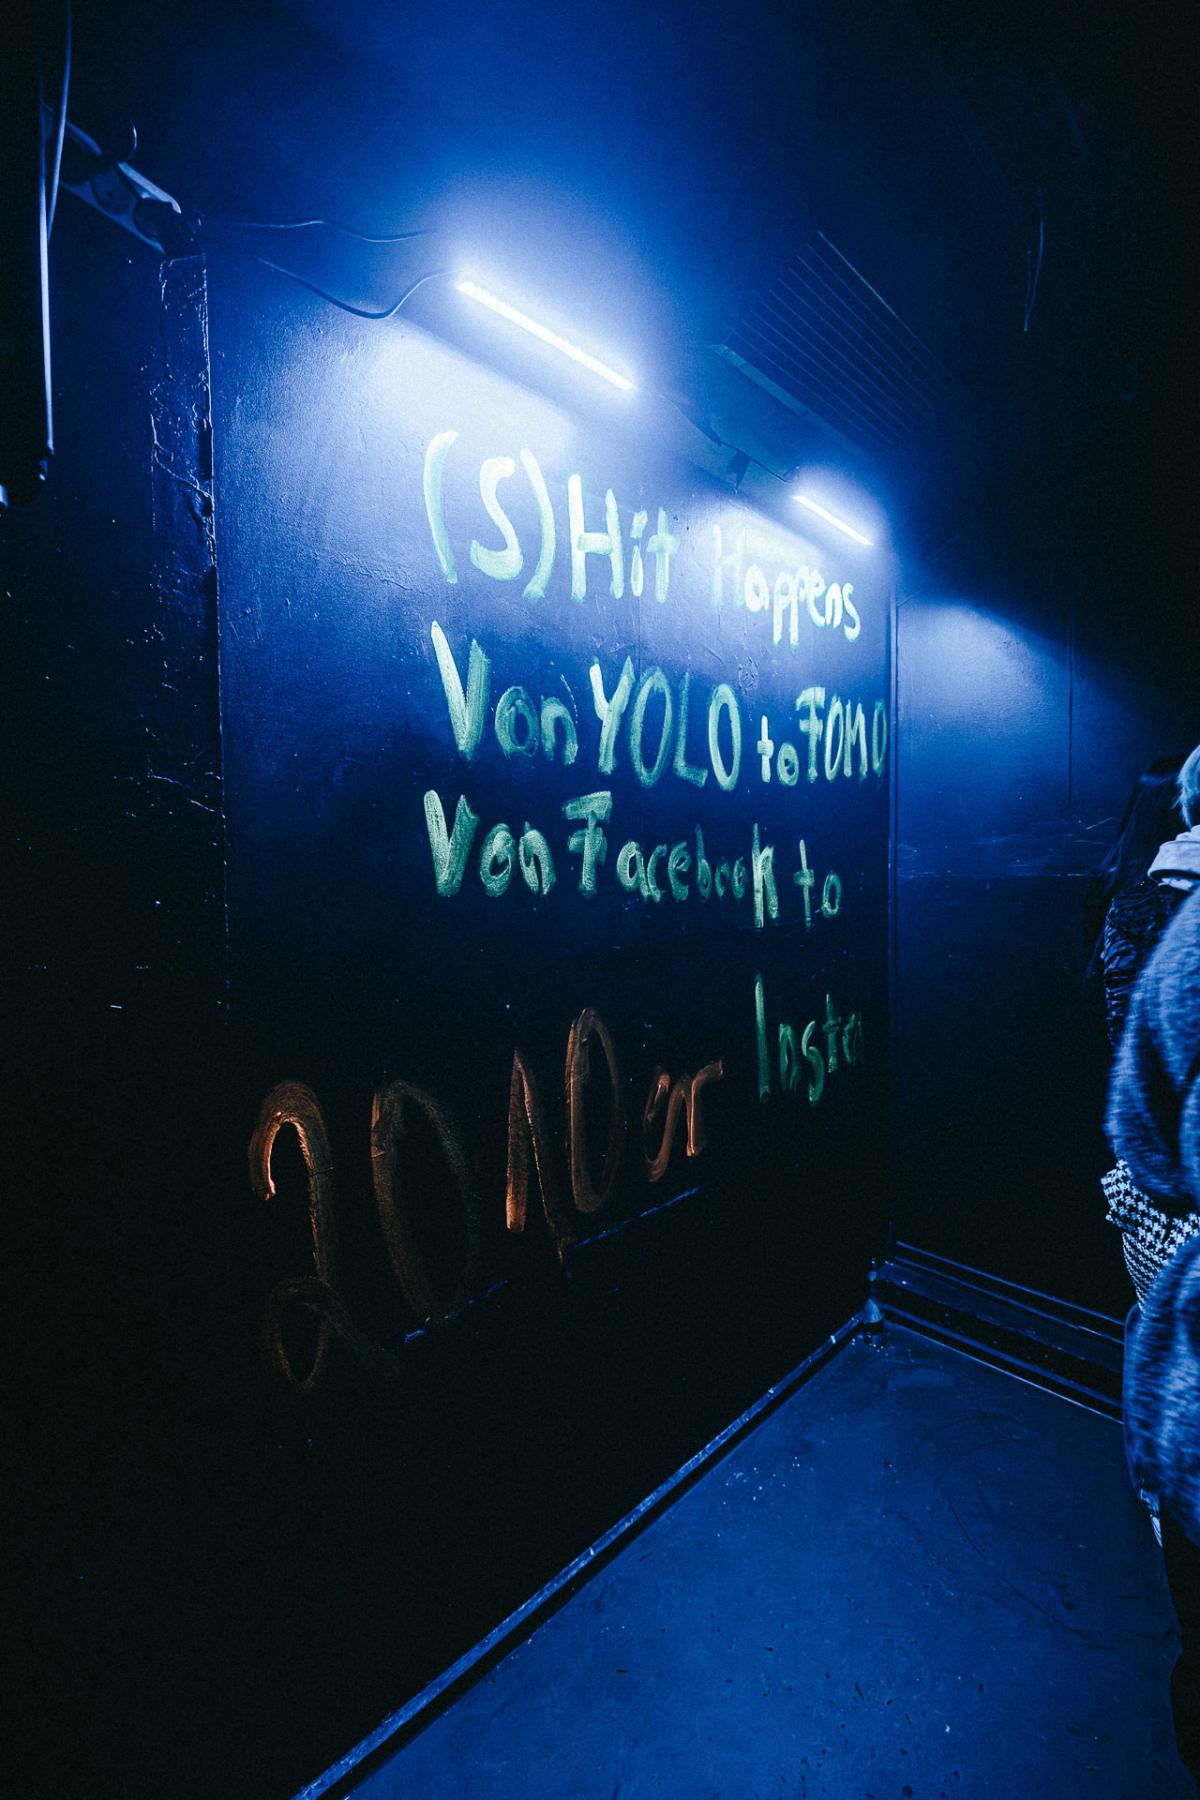 (S)Hit Happens
Von YOLO to FOMO
Von Facebook to
Insta
2010er